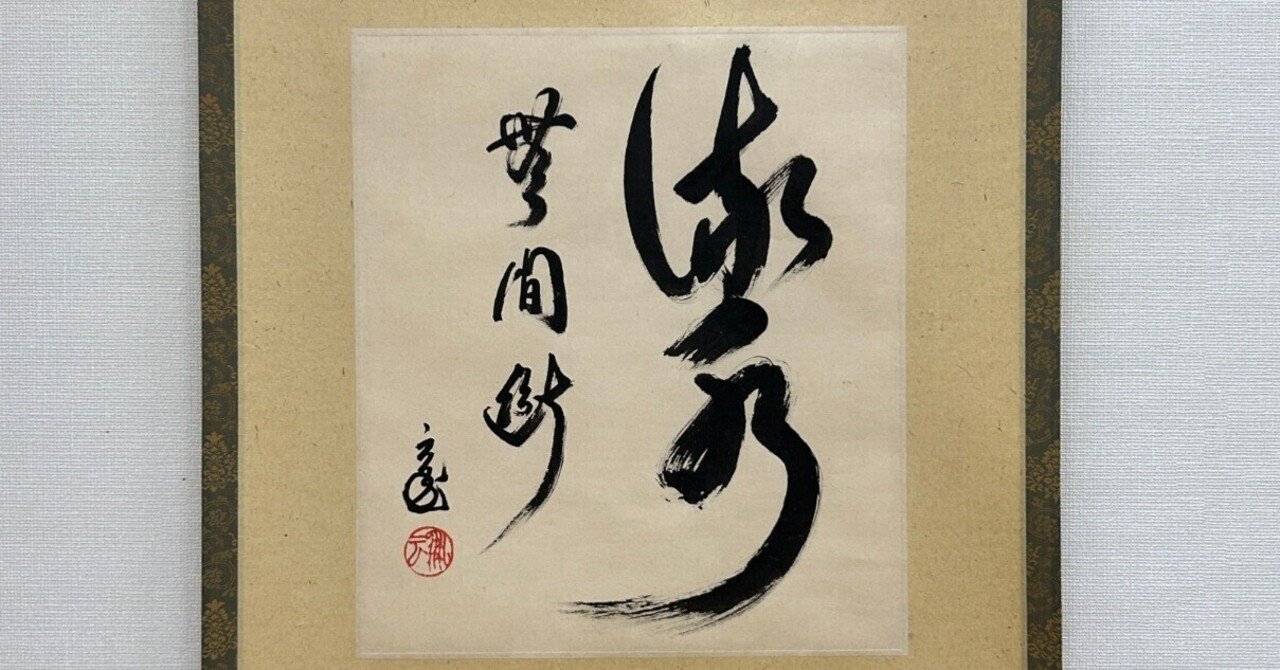 流水
無間断